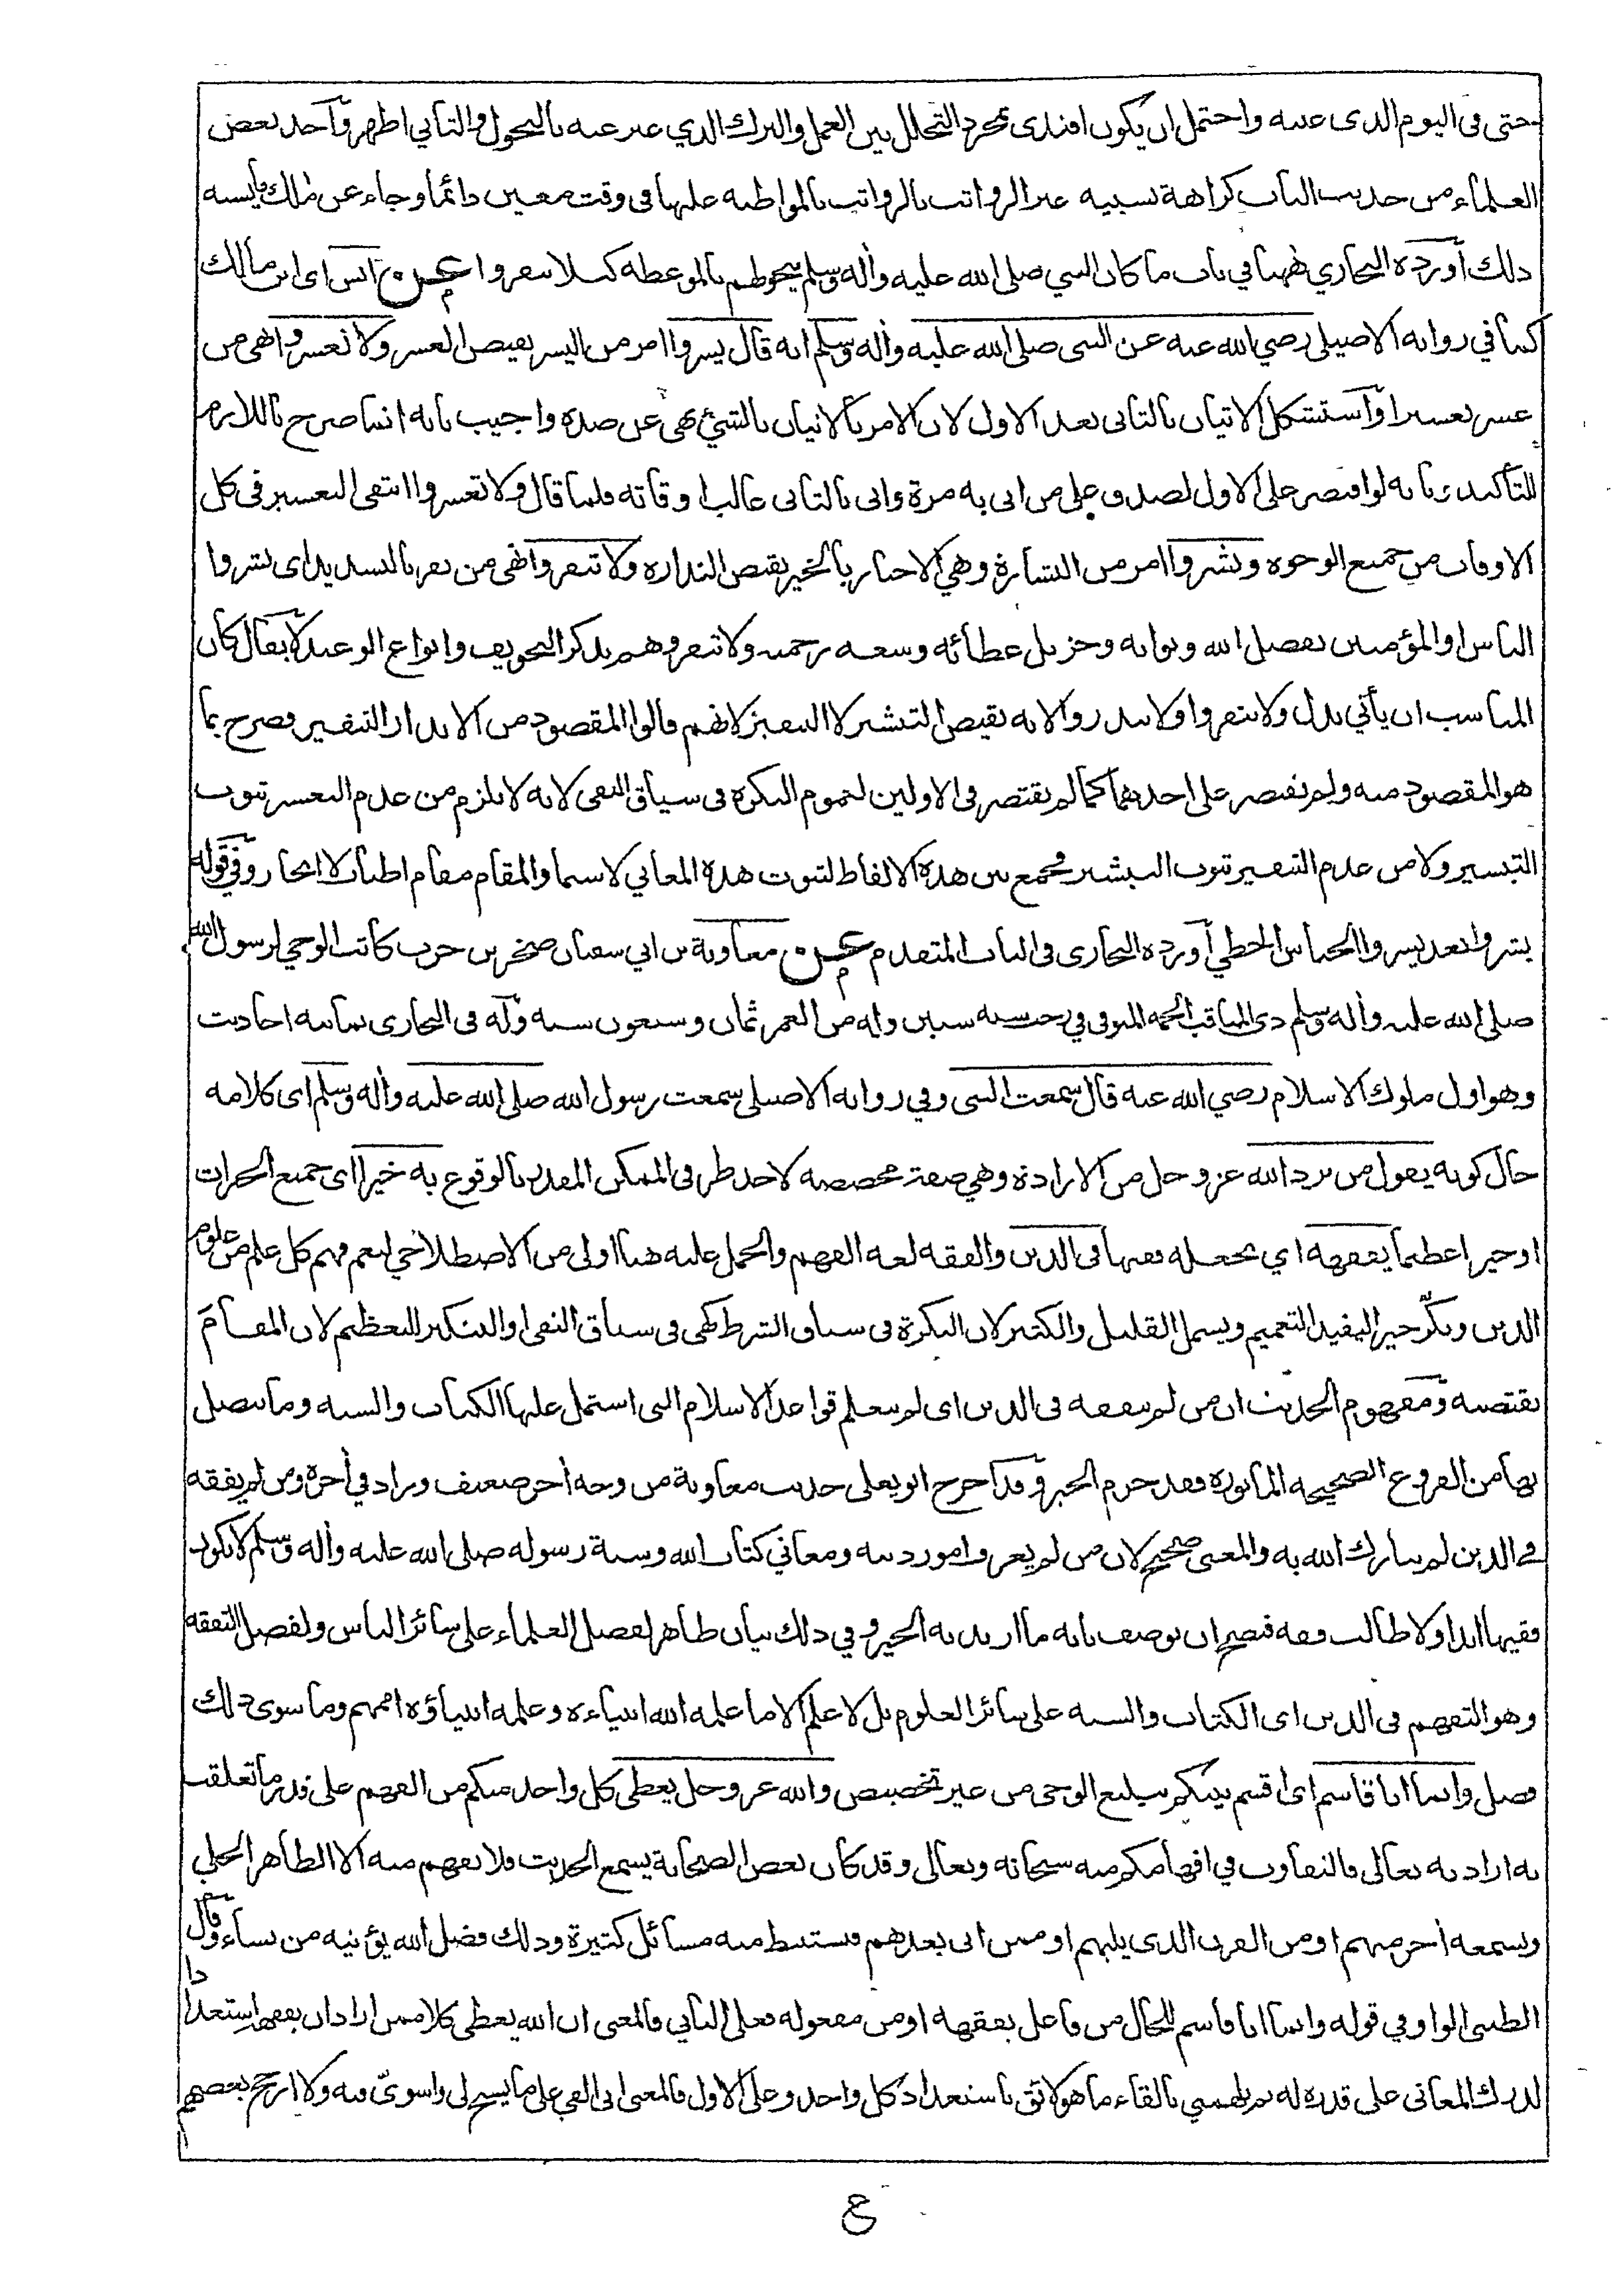 حتى في اليوم الذي عينه واحتمل ان يكون اقتدى بمجرد التخلل بين العمل والترك الذي عبر عنه بالتخول والثاني اظهر وأخذ بعض
العلماء من حديث الباب كراهة تشبيه غير الرواتب بالرواتب بالمواظبة عليها في وقت معين دائما وجاء عن مالك ما يشبه
ذلك أورده البخاري ههنا في باب ما كان النبي صلى الله عليه وأله وسلم يتخولهم بالموعظة كيلا ينفروا عن انس اي ابن مالك
كما في رواية الاصيلي رضي الله عنه عن النبي صلى الله عليه وأله وسلم انه قال يسروا امر من اليسر نقيض العسر ولا تعسروا نهي من
عسر تعسيرا وأستشكل الاتيان بالثاني بعد الاول لان الامر بالاتيان بالشئ نهي عن ضده واجيب بانه انما صرح باللازم
للتأكيد وبانه لو اقتصر على الاول لصدق على من اتى به مرة واتى بالثاني غالب اوقاته فلما قال ولا تعسروا انتفى التعسير في كل
الاوقات من جميع الوجوه وبشروا امر من البشارة وهي الاخبار بالخير نقيض النذارة ولا تنفروا نهي من نفر بالتشديد اي بشروا
الناس او المؤمنين بفضل الله وثوابه وجزيل عطائه وسعة رحمته ولا تنفروهم بذكر التخويف وانواع الوعيد لا يقال كان
المناسب ان يأتي بدل ولا تنفروا ولا تنذروا لانه نقيض التبشير لا التنفير لانهم قالوا المقصود من الانذار التنفير فصرح بما
هو المقصود منه ولم يقتصر على احدهما كما لم يقتصر في الاولين لعموم النكرة في سياق النفي لانه لا يلزم من عدم التعسير ثبوت
التيسير ولا من عدم التنفير ثبوت التبشير فجمع بين هذه الالفاظ لثبوت هذه المعاني لا سيما والمقام مقام اطناب لا ايجاز وفي قوله
بشروا بعد يسروا الجناس الخطي أورده البخاري في الباب المتقدم عن معاوية بن ابي سفيان صخر بن حرب كاتب الوحي لرسول الله
صلى الله عليه وأله وسلم ذي المناقب الجمة المتوفى في رجب سنة ستين وله من العمر ثمان وسبعون سنة وله في البخاري ثمانية احاديث
وهو اول ملوك الاسلام رضي الله عنه قال سمعت النبي وفي رواية الاصيلي سمعت رسول الله صلى الله عليه وأله وسلم اي كلامه
حال كونه يقول من يرد الله عز وجل من الارادة وهي صفة مخصصة لاحد طرفي الممكن المقدر بالوقوع به خيرا اي جميع الخيرات
او خيرا عظيما يفقهه اي يجعله فقيها في الدين والفقه لغة الفهم والحمل عليه هنا اولى من الاصطلاحي ليعم فهم كل علم من علوم
الدين ونكّر خيرا ليفيد التعميم ويشمل القليل والكثير لان النكرة في سياق الشرط كهي في سياق النفي او التنكير للتعظيم لان المقام
يقتضيه ومفهوم الحديث ان من لم يتفقه في الدين اي لم يتعلم قواعد الاسلام التي اشتمل عليها الكتاب والسنة وما يتصل
بها من الفروع الصحيحة المأثورة فقد حرم الخير وقد اخرج ابو يعلى حديث معاوية من وجه أخر ضعيف وزاد في أخره ومن لم يفقه
في الدين لم يبارك الله به والمعنى صحيح لان من لم يعرف امور دينه ومعاني كتاب الله وسنة رسوله صلى الله عليه وأله وسلم لا يكون
فقيها ابدا ولا طالب فقه فيصح ان يوصف بانه ما اريد به الخير وفي ذلك بيان ظاهر لفضل العلماء على سائر الناس ولفضل التفقه
وهو التفهم في الدين اي الكتاب والسنة على سائر العلوم بل لا علم الا ما علمه الله انبياءه وعلمه انبياؤه اممهم وما سوى ذلك
فضل وانما انا قاسم اي اقسم بينكم تبليغ الوحي من غير تخصيص والله عز وجل يعطي كل واحد منكم من الفهم على قدر ما تعلقت
به ارادته تعالى فالتفاوت في افهامكم منه سبحانه وتعالى وقد كان بعض الصحابة يسمع الحديث فلا يفهم منه الا الظاهر الجلي
ويسمعه أخر منهم او من القرن الذي يليهم او ممن اتى بعدهم فيستنبط منه مسائل كثيرة وذلك فضل الله يؤتيه من يشاء وقال
الطيبي الواو في قوله وانما انا قاسم للحال من فاعل يفقهه او من مفعوله فعلى الثاني فالمعنى ان الله يعطي كلا ممن اراد ان يفقهه استعدادا
لدرك المعاني على قدره له ثم يلهمني بالقاء ما هو لائق باستعداد كل واحد وعلى الاول فالمعنى اني القي على ما يسنح لي واسوي فيه ولا ارجح بعضهم
ع